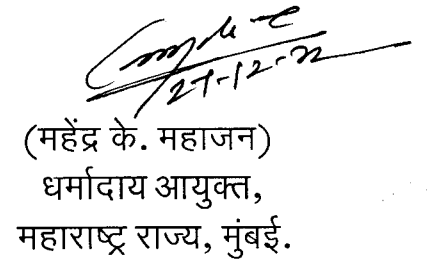 27-12-22
(महेंद्र के. महाजन)
धर्मादाय आयुक्त,
महाराष्ट्र राज्य, मुंबई.